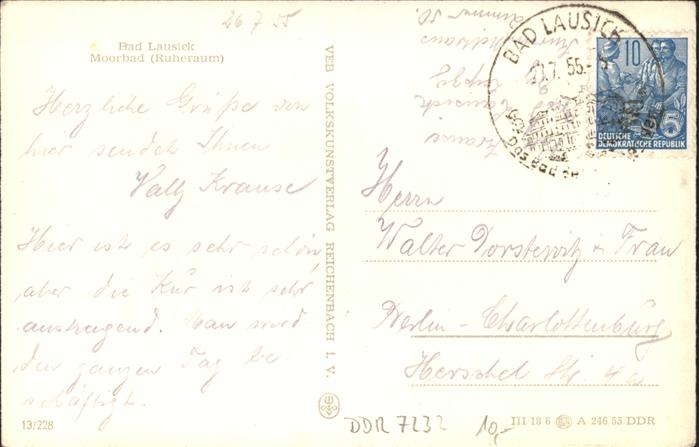 26 7 55
Bad Lausick
Moorbad (Ruheraum)
Herzliche Grüße von
hier sendet Ihnen
Vally Krause
Hier ist es sehr schön,
aber die Kur ist sehr
anstrengend. Man wird
den ganzen Tag be
schäftigt.
13/228
VEB VOLKSKUNSTVERLAG REICHENBACH I. V.
Krause
Bad Lausick
Kurhaus
Zimmer 50.
BAD LAUSICK
.7. 55.-
10
DEUTSCHE
DEMOKRATISCHE REPUBLIK
Herrn
Walter Dorstewitz u. Frau
Berlin-Charlottenburg
Herschel Str. 4a
DDR 7232
10,-
III 18 6 A 246 55 DDR